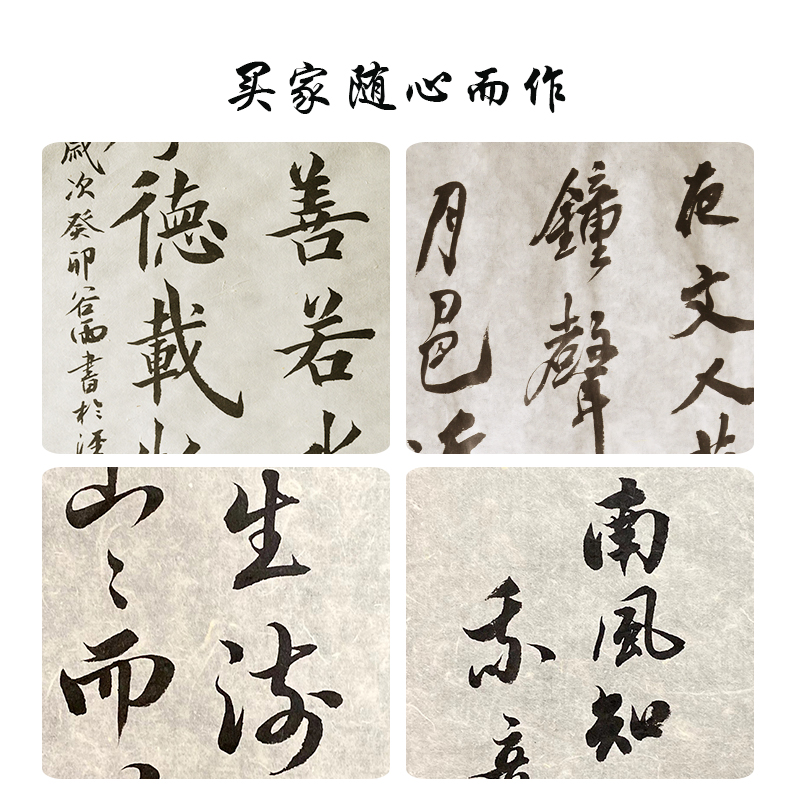 买家随心而作
善若水
德載
歲次癸卯谷雨書於
夜文人
鐘聲
月邑
生涛
山〻而
南風知
我意